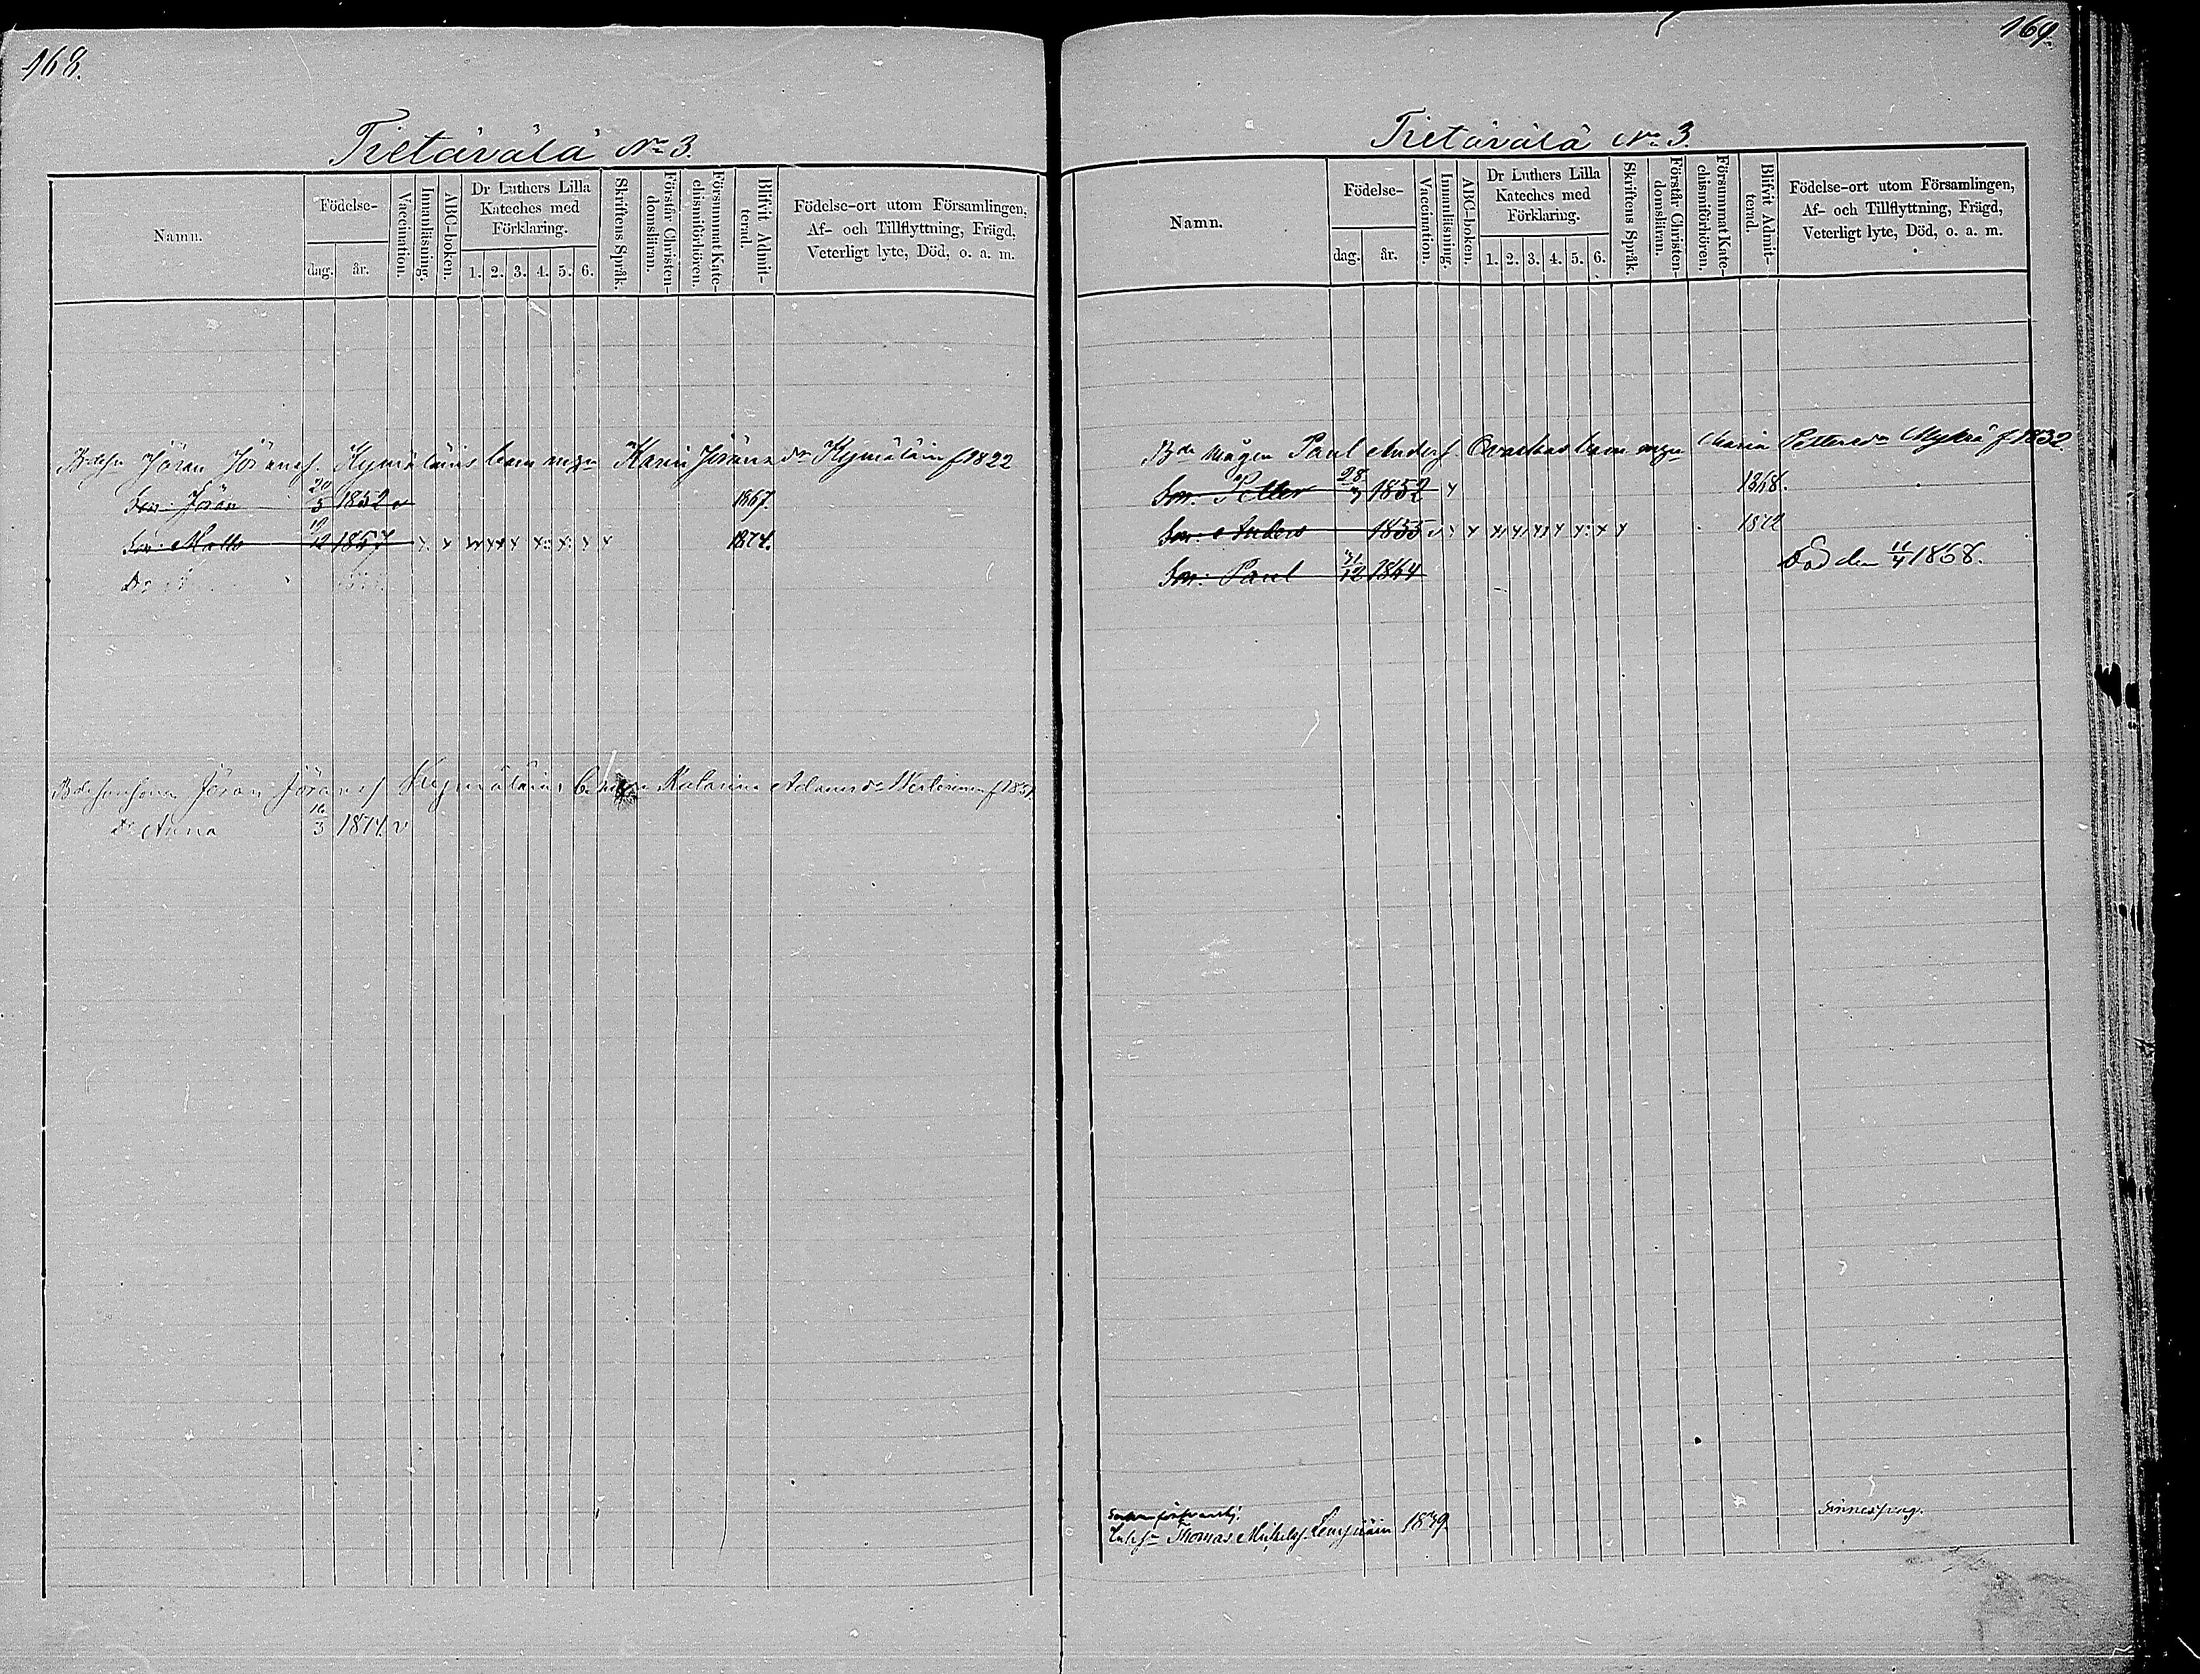 168.
Tietävälä No 3.
Namn.
Födelse-
dag. år.
Vaccination.
Innanläsning.
ABC-boken.
Dr Luthers Lilla
Kateches med
Förklaring.
1. 2. 3. 4. 5. 6.
Skriftens Språk.
Förstår Christen-
domsläran.
Försummat Kate-
chismiförhören.
Blifvit Admit-
terad.
Födelse-ort utom Församlingen,
Af- och Tillflyttning, Frägd,
Veterligt lyte, Död, o. a. m.
Jöran Jöranss. Kymäläinis barn m Karin Jöransdr Kymäläin f 1822
Son: Jöran 20/5 1852 v 1867.
Son: Matts 19/12 1857 1874.
Dr
Jöran Jöranss Kymäläinis Katarina Adamsdr f 1831
Dr Anna 16/3 1874 v
169.
Tietävälä No 3.
Namn.
Födelse-
dag. år.
Vaccination.
Innanläsning.
ABC-boken.
Dr Luthers Lilla
Kateches med
Förklaring.
1. 2. 3. 4. 5. 6.
Skriftens Språk.
Förstår Christen-
domsläran.
Försummat Kate-
chismiförhören.
Blifvit Admit-
terad.
Födelse-ort utom Församlingen,
Af- och Tillflyttning, Frägd,
Veterligt lyte, Död, o. a. m.
Bde mågen Paul Anderss. barn m Maria Pettersdr Mykrä f 1832.
Son: Petter 28/7 1852 1868.
Son: Anders 1855 1872
Son: Paul 31/12 1864 Död den 11/4 1868.
Thomas Mickelss. 1839. Sinnessvag.